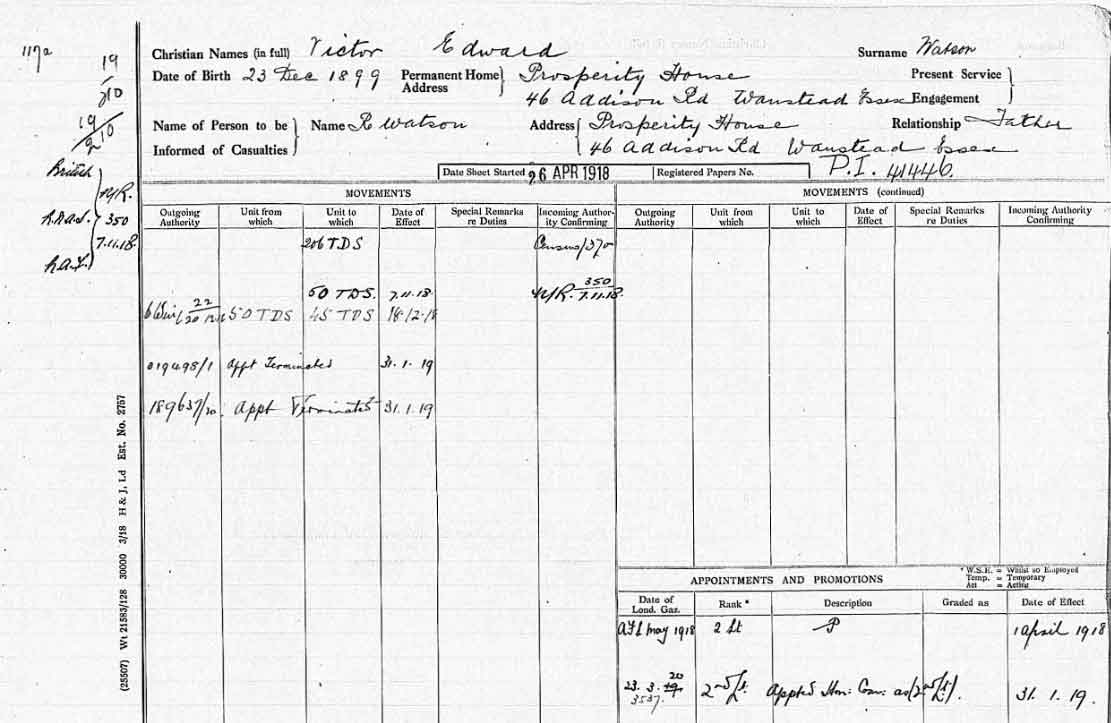 117a
19
210
19
210
British
350
7.11.18
Christian Names (in full) Victor Edward Surname Watson
Date of Birth 23 Dec 1899 Permanent Home Address } Prosperity House Present Service }
46 Addison Rd Wanstead Essex Engagement
Name of Person to be } Name R Watson Address { Prosperity House Relationship Father
Informed of Casualties 46 Addison Rd Wanstead Essex
Date Sheet Started 26 APR 1918 Registered Papers No. P.I. 41446.
MOVEMENTS
Outgoing Authority Unit from which Unit to which Date of Effect Special Remarks re Duties Incoming Authority Confirming
206 TDS Census/370
50 TDS. 7.11.18. 350 7.11.18.
22 50 TDS 45 TDS 18-12-18
019498/1 Appt Terminated 31.1.19
189637/20. Appt Terminated 31.1.19
MOVEMENTS (continued)
Outgoing Authority Unit from which Unit to which Date of Effect Special Remarks re Duties Incoming Authority Confirming
* W.S.E. = Whilst so Employed
Temp. = Temporary
Act = Acting
APPOINTMENTS AND PROMOTIONS
Date of Lond. Gaz. Rank * Description Graded as Date of Effect
AFL May 1918 2 Lt P 1 April 1918
23.3.20 3537. 2nd Lt. Appted Hon: Com: as (2nd Lt). 31.1.19.
(25507) Wt 21583/128 30000 3/18 H & J, Ld Est. No. 2757